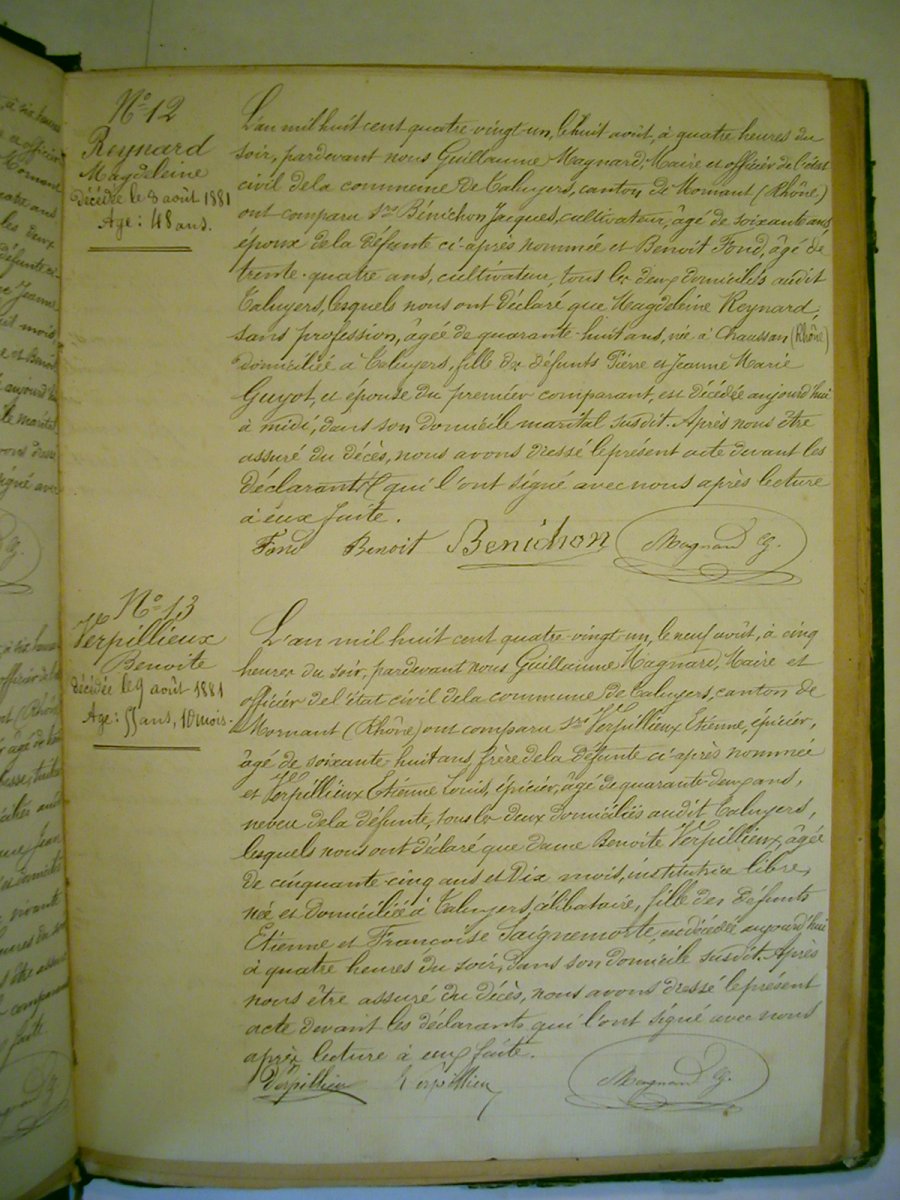 N° 12
Reynard
Magdeleine
décédée le 8 août 1881
Age : 48 ans.
L'an mil huit cent quatre-vingt-un, le huit août, à quatre heures du
soir, pardevant nous Guillaume Magnard, Maire et officier de l'état
civil de la commune de Taluyers, canton de Mornant (Rhône)
ont comparu Srs Bénichon Jacques, cultivateur, âgé de soixante ans
époux de la défunte ci-après nommée et Benoit Fond, âgé de
trente-quatre ans, cultivateur, tous les deux domiciliés audit
Taluyers, lesquels nous ont déclaré que Magdeleine Reynard,
sans profession, âgée de quarante-huit ans, née à Chaussan (Rhône)
domiciliée à Taluyers, fille des défunts Pierre et Jeanne Marie
Guyot, et épouse du premier comparant, est décédée aujourd'hui
à midi, dans son domicile marital susdit. Après nous être
assuré du décès, nous avons dressé le présent acte devant les
déclarants qui l'ont signé avec nous après lecture
à eux faite.
Fond Benoit Benichon Magnard G.
N° 13
Verpillieux
Benoite
décédée le 9 août 1881
Age : 55 ans, 10 mois.
L'an mil huit cent quatre-vingt-un, le neuf août, à cinq
heures du soir, pardevant nous Guillaume Magnard, Maire et
officier de l'état civil de la commune de Taluyers, canton de
Mornant (Rhône) ont comparu Srs Verpillieux Etienne, épicier,
âgé de soixante-huit ans, frère de la défunte ci-après nommée
et Verpillieux Etienne Louis, épicier, âgé de quarante-deux ans,
neveu de la défunte, tous les deux domiciliés audit Taluyers,
lesquels nous ont déclaré que dame Benoite Verpillieux, âgée
de cinquante-cinq ans et dix mois, institutrice libre,
née et domiciliée à Taluyers, célibataire, fille des défunts
Etienne et Françoise Saignemorte, est décédée aujourd'hui
à quatre heures du soir, dans son domicile susdit. Après
nous être assuré du décès, nous avons dressé le présent
acte devant les déclarants qui l'ont signé avec nous
après lecture à eux faite.
Verpillieu Verpillieu Magnard G.